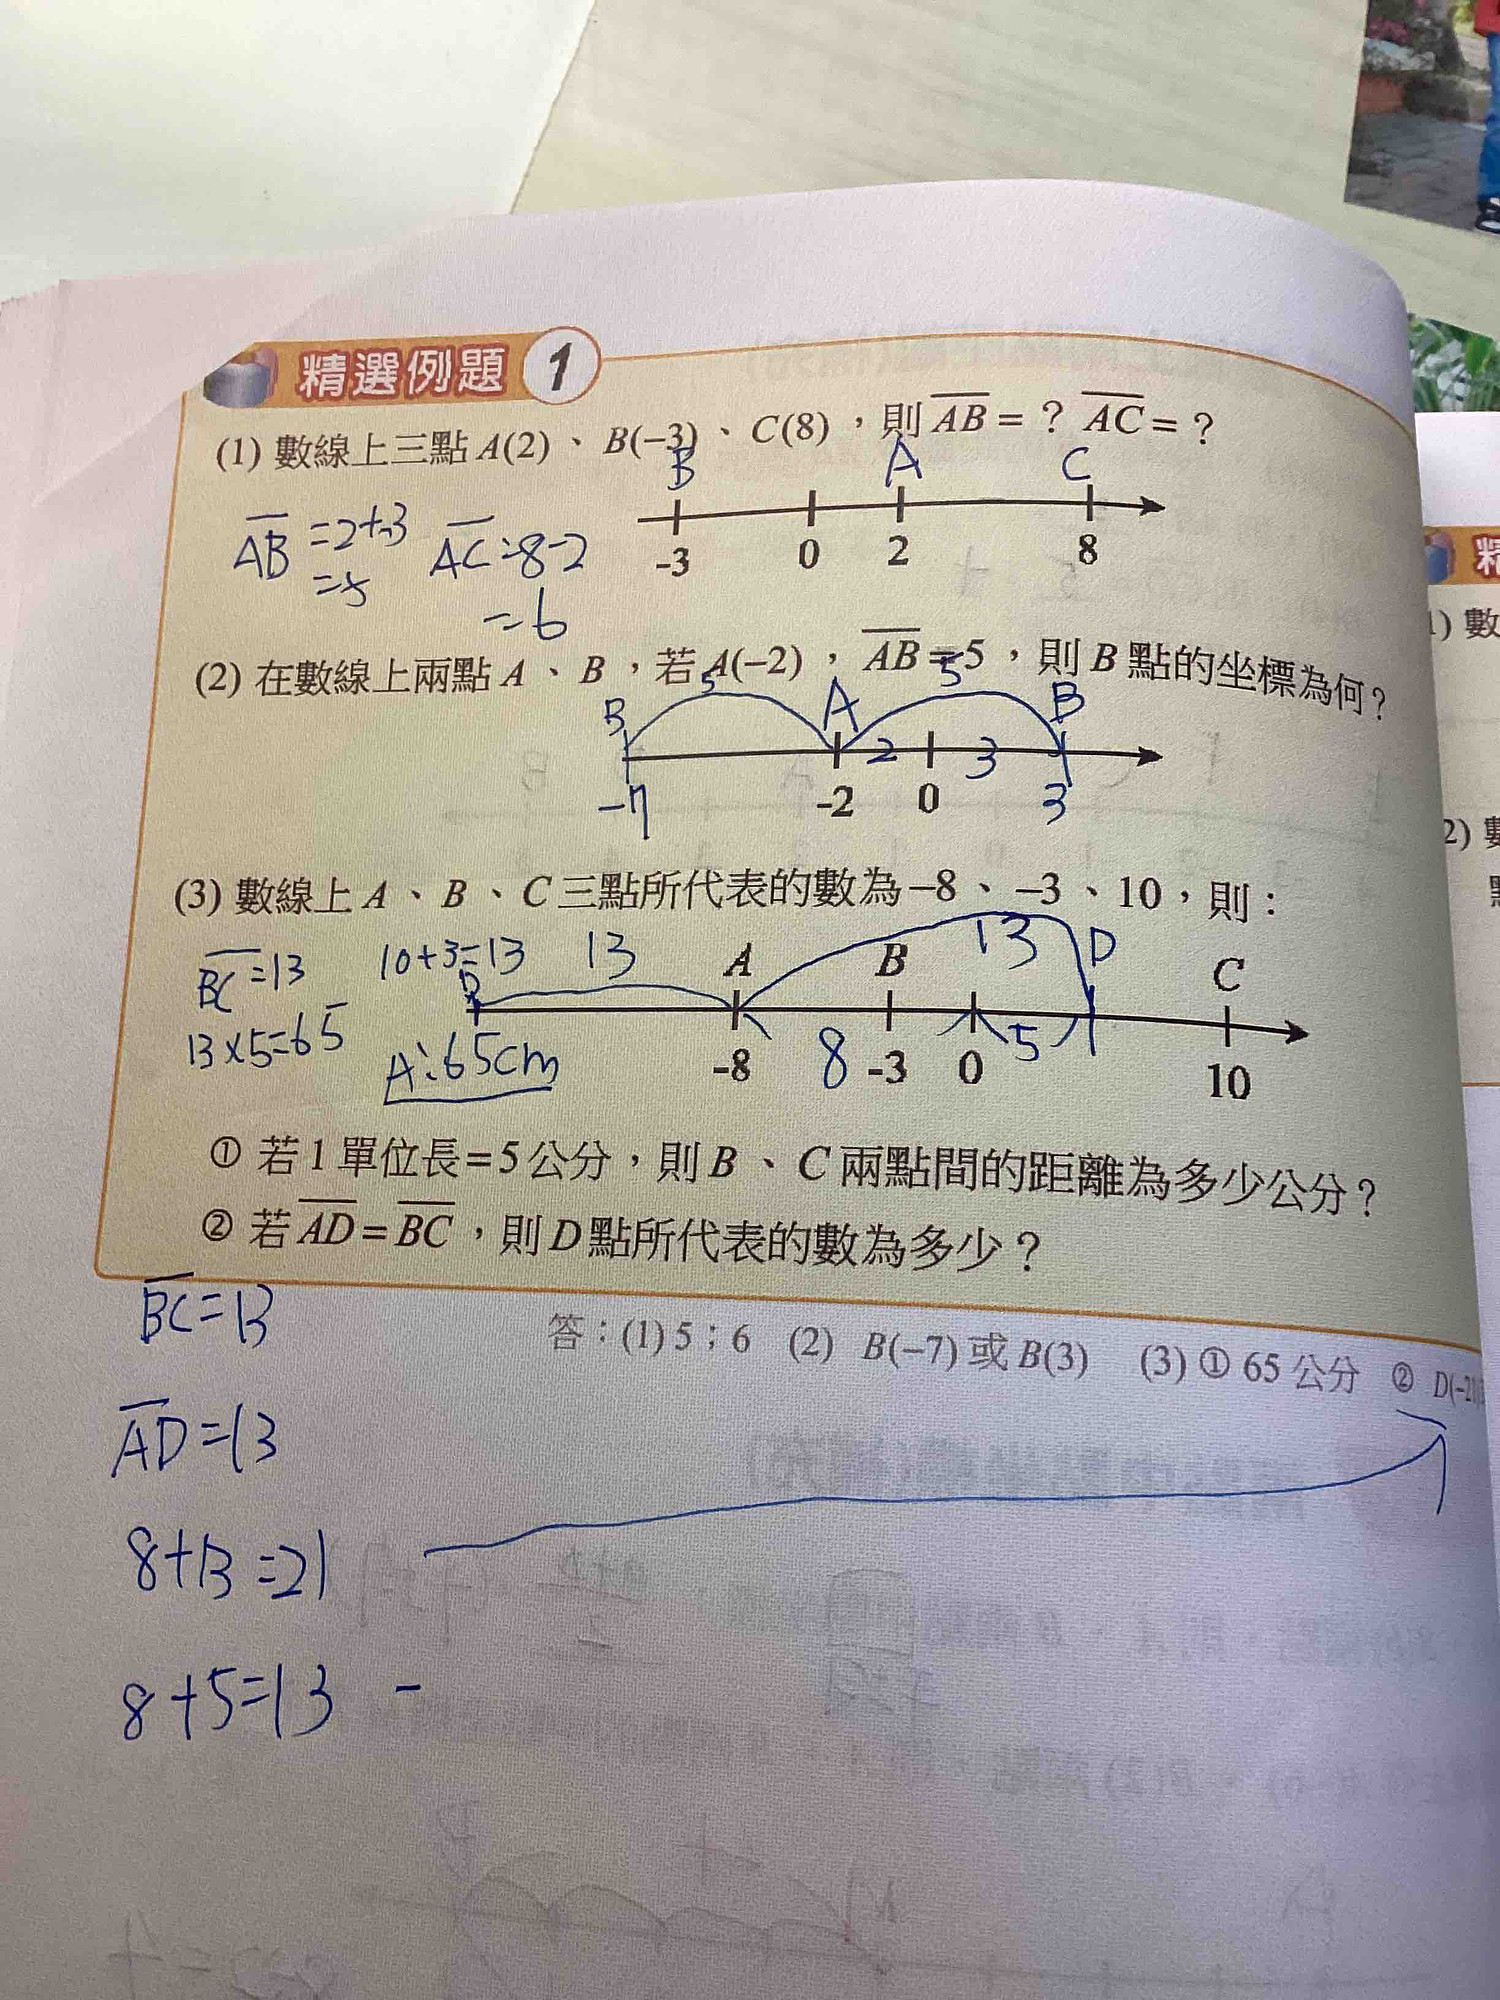 精選例題 1
(1) 數線上三點 A(2)、B(−3)、C(8),則 AB = ? AC = ?
B A C
AB =2+3 AC=8-2
=5
=6
-3 0 2 8
(2) 在數線上兩點 A、B,若 A(−2),AB = 5,則 B 點的坐標為何?
5 5
B A B
2 3
-7 -2 0 3
(3) 數線上 A、B、C 三點所代表的數為 −8、−3、10,則:
BC=13 10+3=13 13 A B 13 D C
D
13×5=65 A:65cm
8 5
-8 -3 0 10
① 若 1 單位長=5 公分,則 B、C 兩點間的距離為多少公分?
② 若 AD = BC,則 D 點所代表的數為多少?
BC=13
答:(1) 5;6 (2) B(−7) 或 B(3) (3) ① 65 公分 ② D(−21)
AD=13
8+13=21
8+5=13 -
1) 數
2) 數